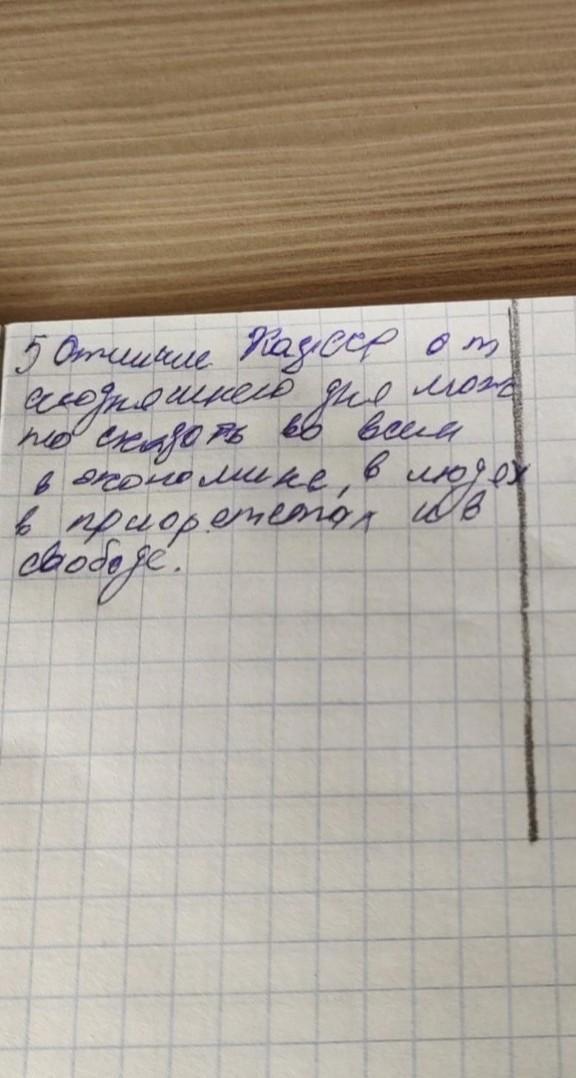 5 Отличие КазССР от
сегодняшнего дня мож
но сказать во всем
в экономике, в людях
в приорететах и в
свободе.